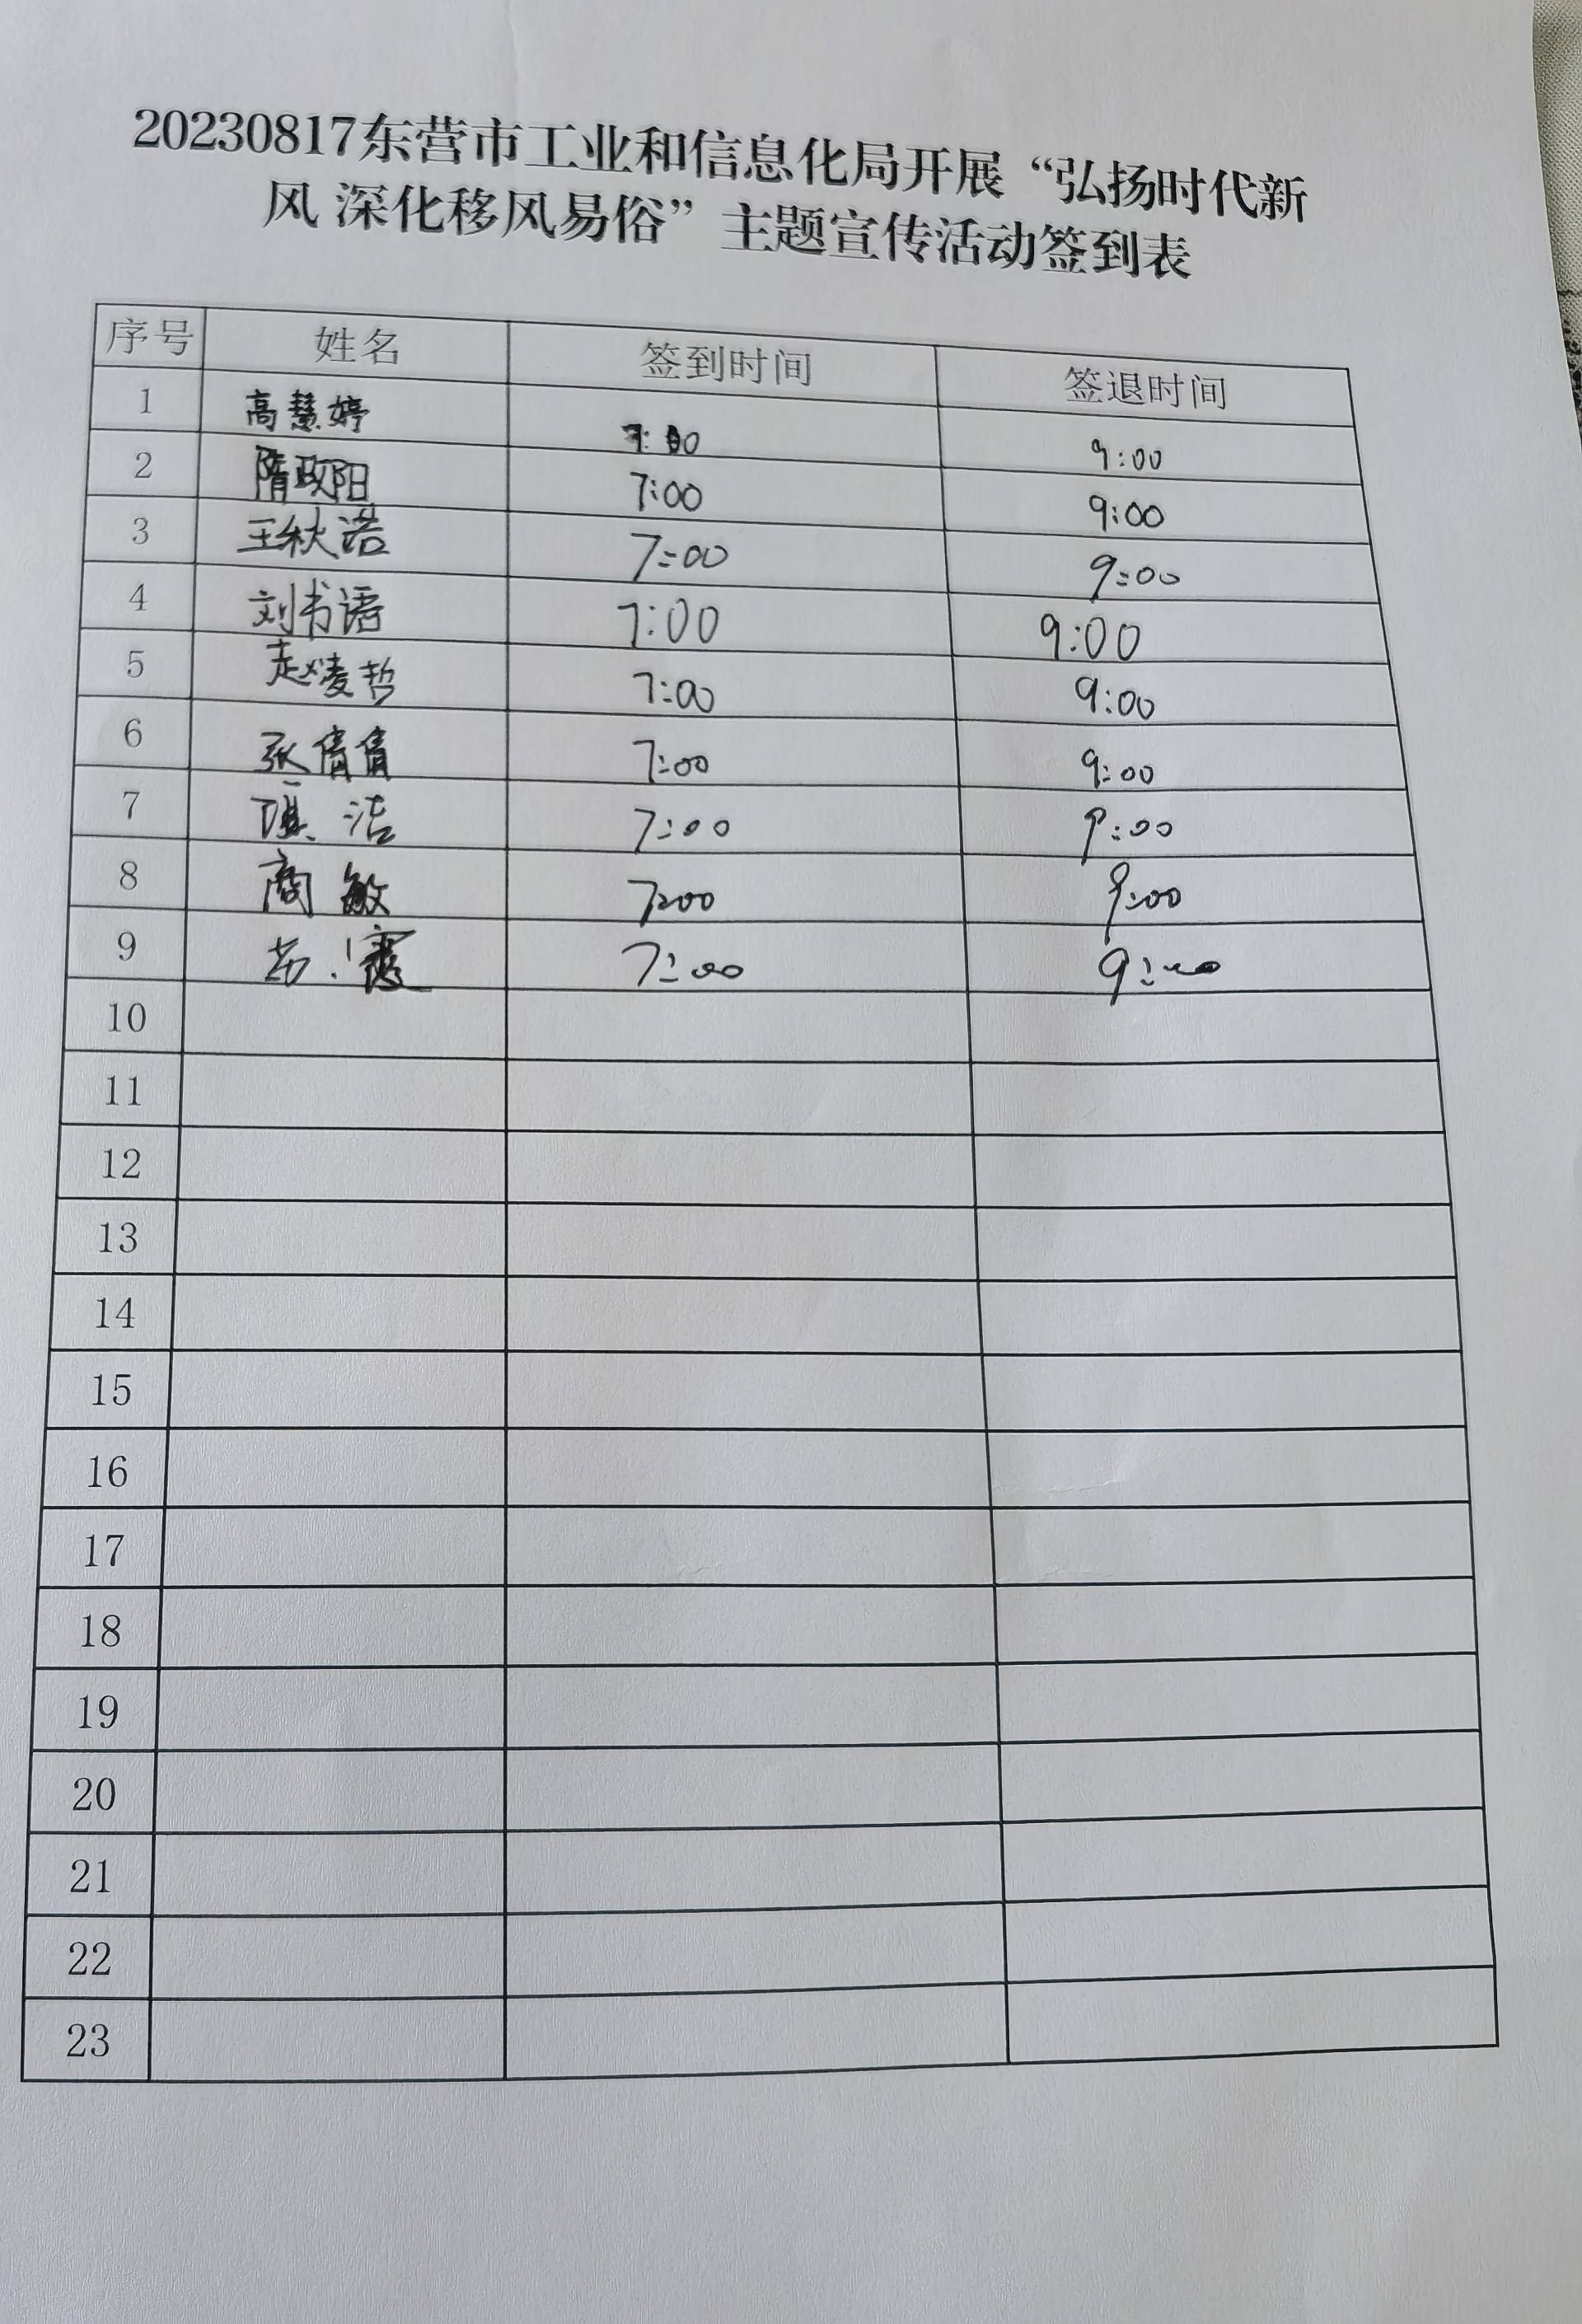 20230817东营市工业和信息化局开展“弘扬时代新
风 深化移风易俗”主题宣传活动签到表
序号 姓名 签到时间 签退时间
1 高慧婷 7:00 9:00
2 隋政阳 7:00 9:00
3 王秋浩 7:00 9:00
4 刘书语 7:00 9:00
5 赵凌哲 7:00 9:00
6 张倩倩 7:00 9:00
7 洁 7:00 9:00
8 商敏 7:00 9:00
9 7:00 9:00
10
11
12
13
14
15
16
17
18
19
20
21
22
23